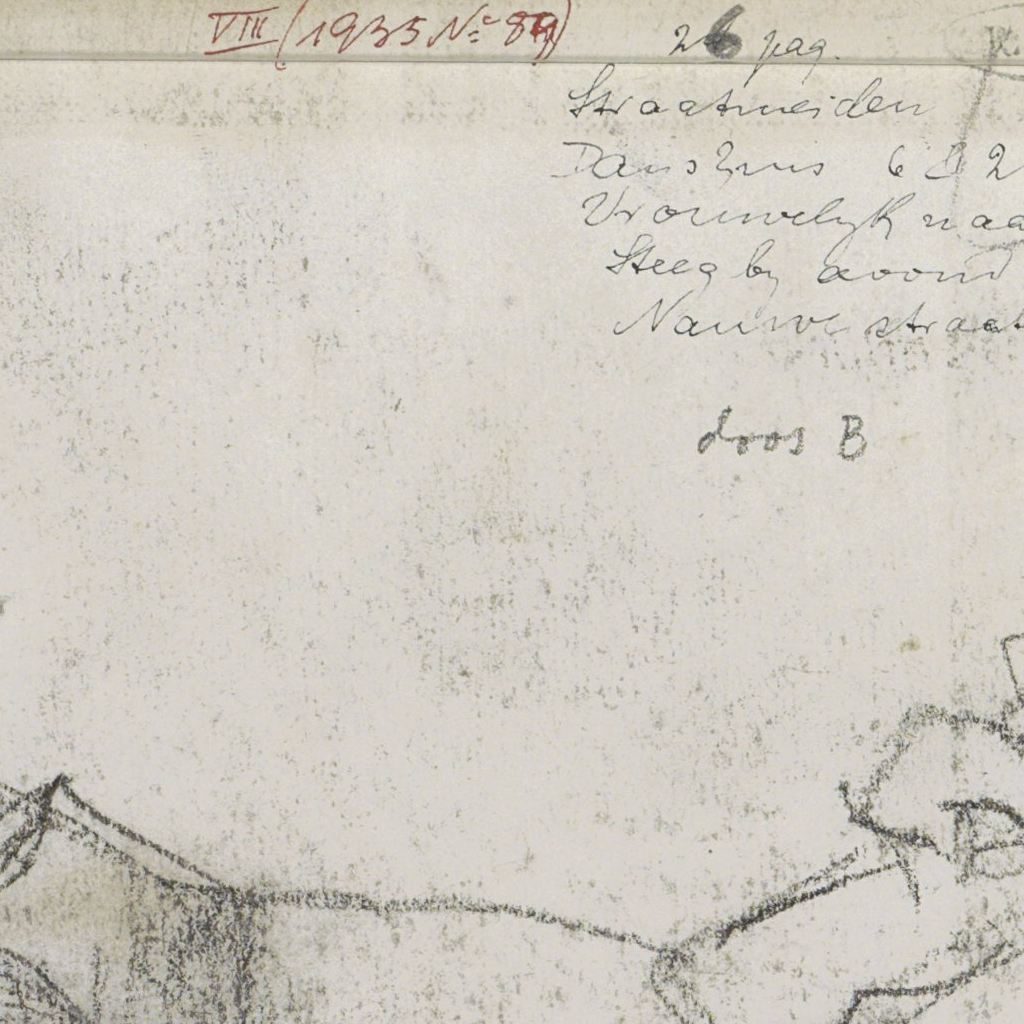 VIII (1935 No 89)
26 pag.
Straatmeiden
Danshuis 6 à 2
Vrouwelyk naa
Steeg by avond
Nauwe straat
doos B